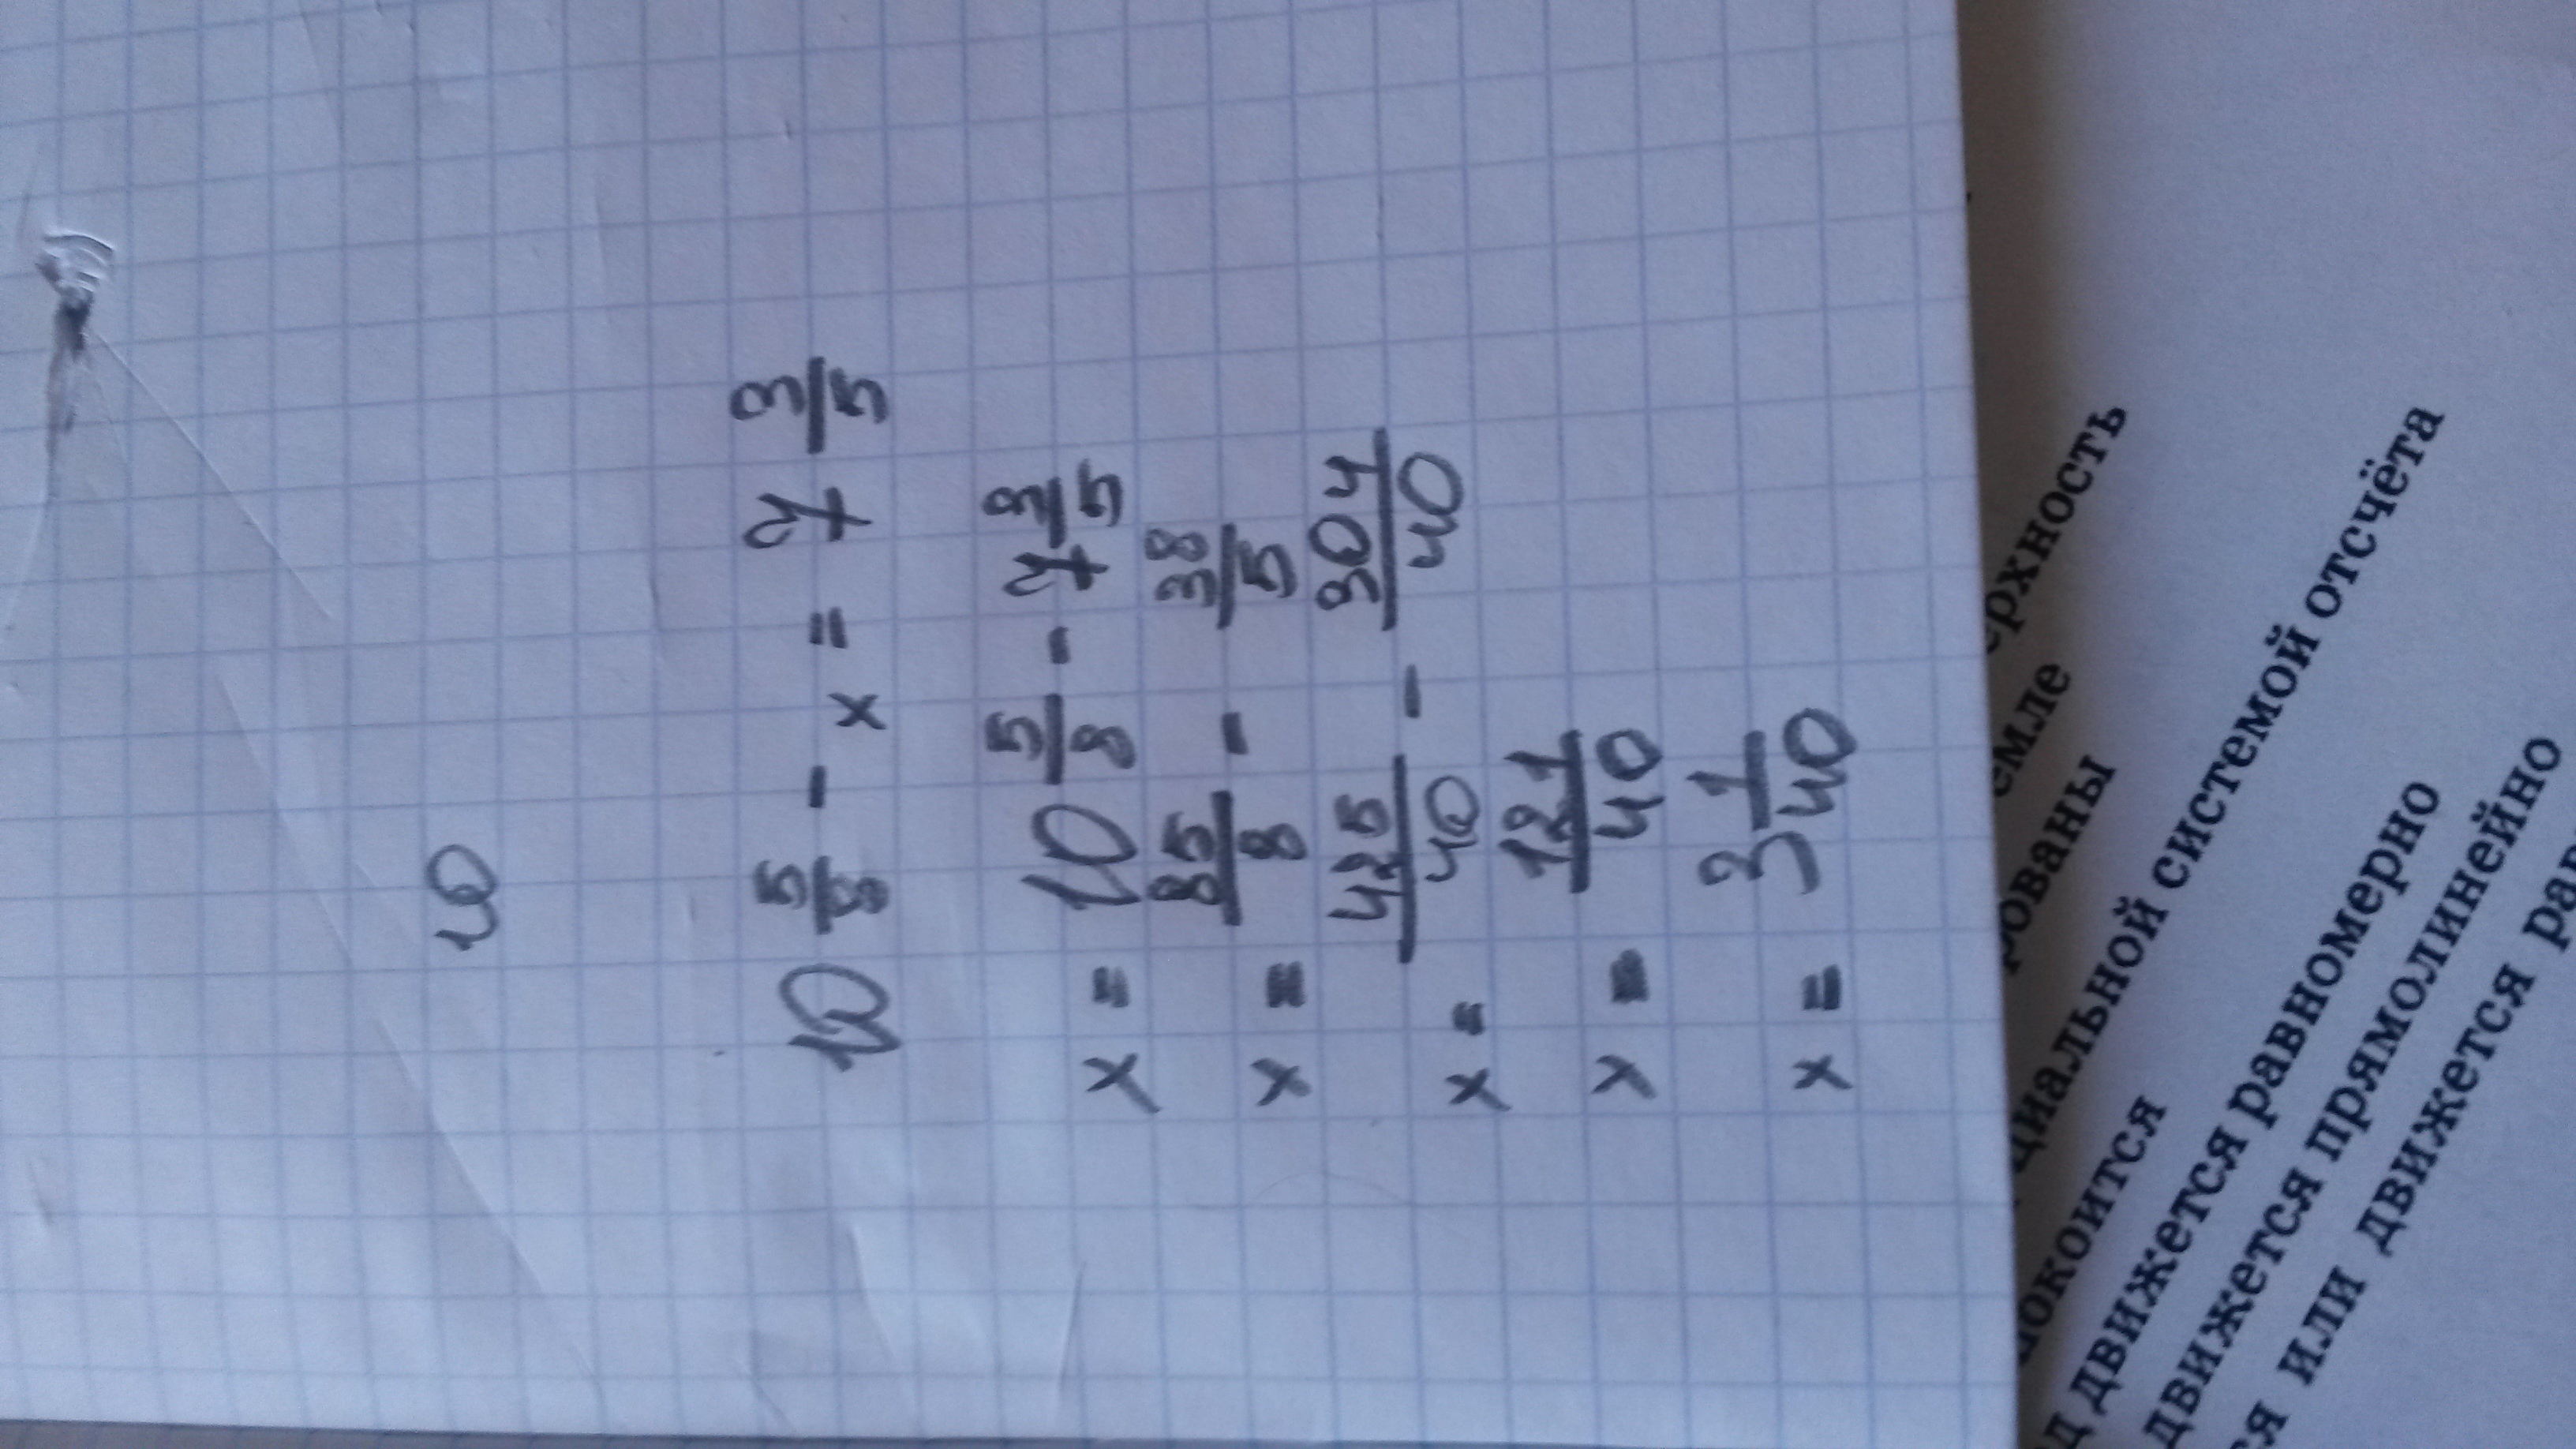 10
10 5/8 - x = 7 3/5
x = 10 5/8 - 7 3/5
x = 85/8 - 38/5
x = 425/40 - 304/40
x = 121/40
x = 3 1/40
рхность
емле
рованы
циальной системой отсчёта
покоится
движется равномерно
движется прямолинейно
или движется